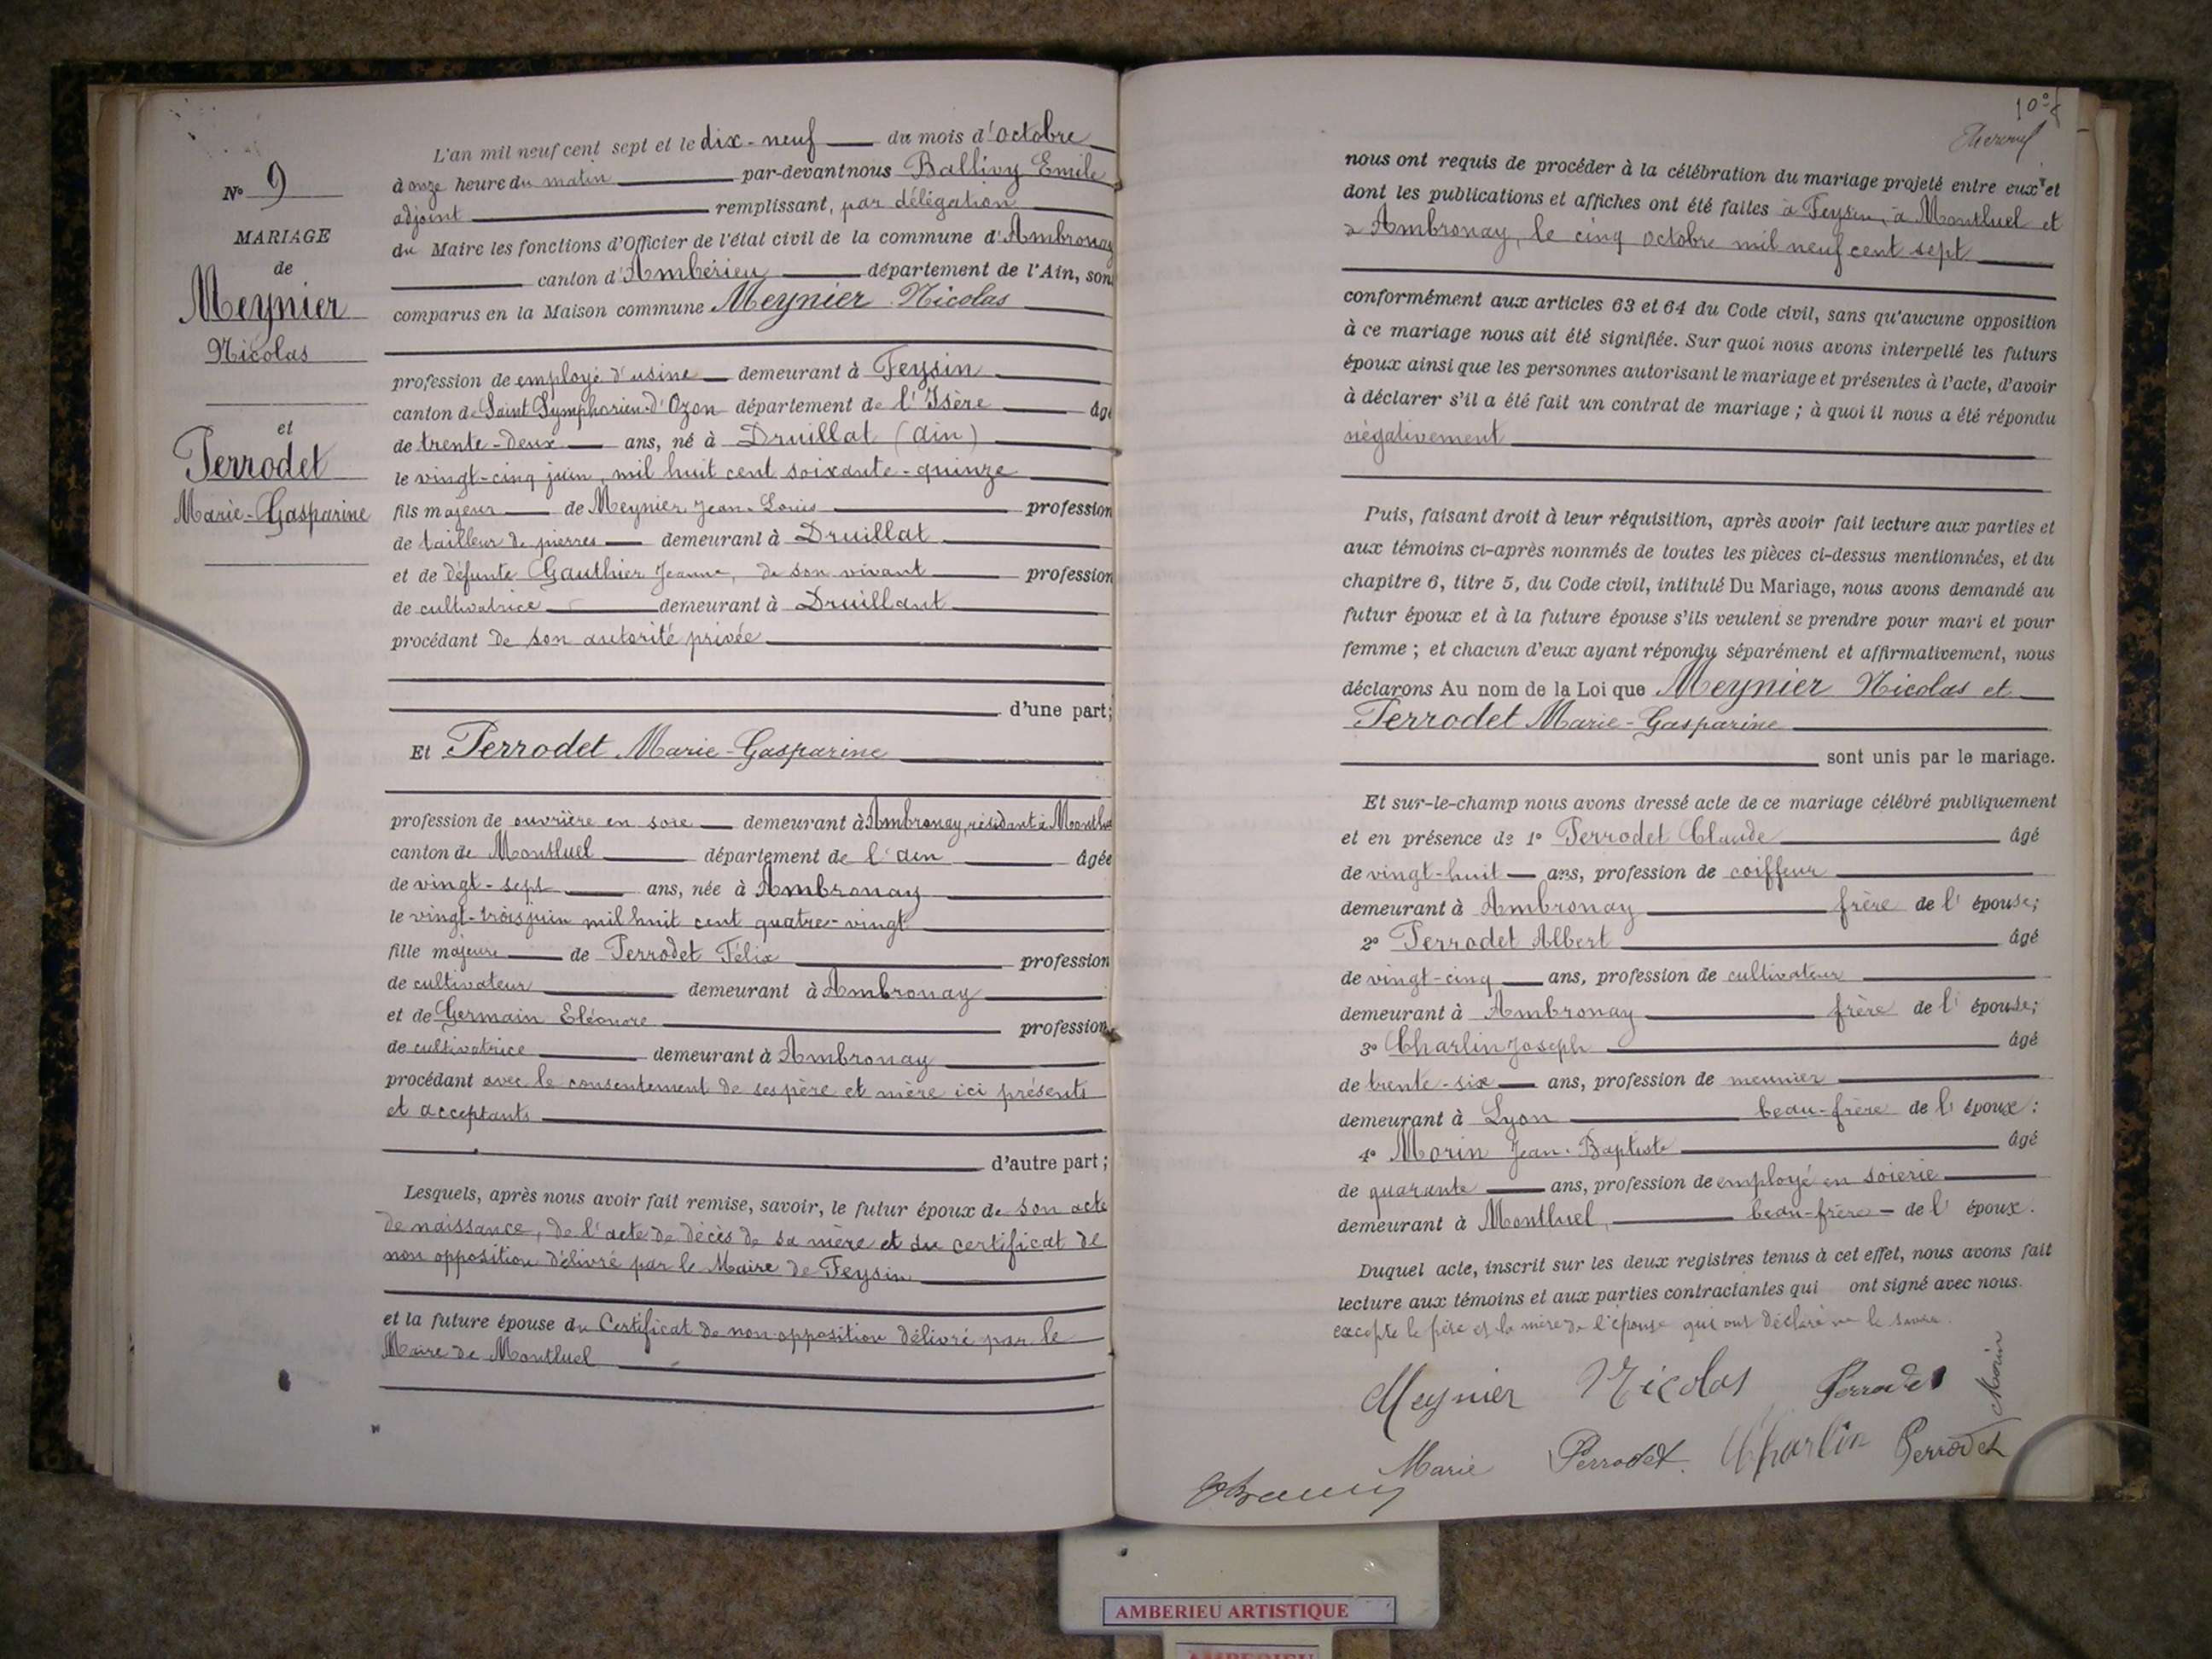 N° 9
MARIAGE
de
Meynier
Nicolas
et
Perrodet
Marie-Gasparine
L'an mil neuf cent sept et le dix-neuf du mois d'octobre
à onze heure du matin par-devant nous Ballivy Emile
adjoint remplissant, par délégation
du Maire les fonctions d'Officier de l'état civil de la commune d'Ambronay
canton d'Ambérieu département de l'Ain, son
comparus en la Maison commune Meynier Nicolas
profession de employé d'usine demeurant à Feysin
canton de Saint Symphorien-d'Ozon département de l'Isère âgé
de trente-deux ans, né à Druillat (Ain)
le vingt-cinq juin, mil huit cent soixante-quinze
fils majeur de Meynier Jean-Louis profession
de tailleur de pierres demeurant à Druillat
et de défunte Gauthier Jeanne, de son vivant profession
de cultivatrice demeurant à Druillant
procédant de son autorité privée
d'une part;
Et Perrodet Marie-Gasparine
profession de ouvrière en soie demeurant à Ambronay, résidant à Montluel
canton de Montluel département de l'Ain âgée
de vingt-sept ans, née à Ambronay
le vingt-trois juin mil huit cent quatre-vingt
fille majeure de Perrodet Félix profession
de cultivateur demeurant à Ambronay
et de Germain Eléonore profession
de cultivatrice demeurant à Ambronay
procédant avec le consentement de ses père et mère ici présents
et acceptants
d'autre part;
Lesquels, après nous avoir fait remise, savoir, le futur époux de son acte
de naissance, de l'acte de décès de sa mère et du certificat de
non opposition délivré par le Maire de Feysin
et la future épouse du Certificat de non-opposition délivré par le
Maire de Montluel
nous ont requis de procéder à la célébration du mariage projeté entre eux et
dont les publications et affiches ont été faites à Feysin, à Montluel et
à Ambronay, le cinq octobre mil neuf cent sept
conformément aux articles 63 et 64 du Code civil, sans qu'aucune opposition
à ce mariage nous ait été signifiée. Sur quoi nous avons interpellé les futurs
époux ainsi que les personnes autorisant le mariage et présentes à l'acte, d'avoir
à déclarer s'il a été fait un contrat de mariage; à quoi il nous a été répondu
négativement
Puis, faisant droit à leur réquisition, après avoir fait lecture aux parties et
aux témoins ci-après nommés de toutes les pièces ci-dessus mentionnées, et du
chapitre 6, titre 5, du Code civil, intitulé Du Mariage, nous avons demandé au
futur époux et à la future épouse s'ils veulent se prendre pour mari et pour
femme; et chacun d'eux ayant répondu séparément et affirmativement, nous
déclarons Au nom de la Loi que Meynier Nicolas et
Perrodet Marie-Gasparine
sont unis par le mariage.
Et sur-le-champ nous avons dressé acte de ce mariage célébré publiquement
et en présence de 1° Perrodet Claude âgé
de vingt-huit ans, profession de coiffeur
demeurant à Ambronay frère de l'épouse;
2° Perrodet Albert âgé
de vingt-cinq ans, profession de cultivateur
demeurant à Ambronay frère de l'épouse;
3° Charlin Joseph âgé
de trente-six ans, profession de meunier
demeurant à Lyon beau-frère de l'époux:
4° Morin Jean-Baptiste âgé
de quarante ans, profession de employé en soierie
demeurant à Montluel, beau-frère de l'époux.
Duquel acte, inscrit sur les deux registres tenus à cet effet, nous avons fait
lecture aux témoins et aux parties contractantes qui ont signé avec nous.
excepté le père et la mère de l'épouse qui ont déclaré ne le savoir.
Meynier Nicolas Perrodet Morin
Marie Perrodet. Charlin Perrodet
AMBERIEU ARTISTIQUE
AMBERIEU